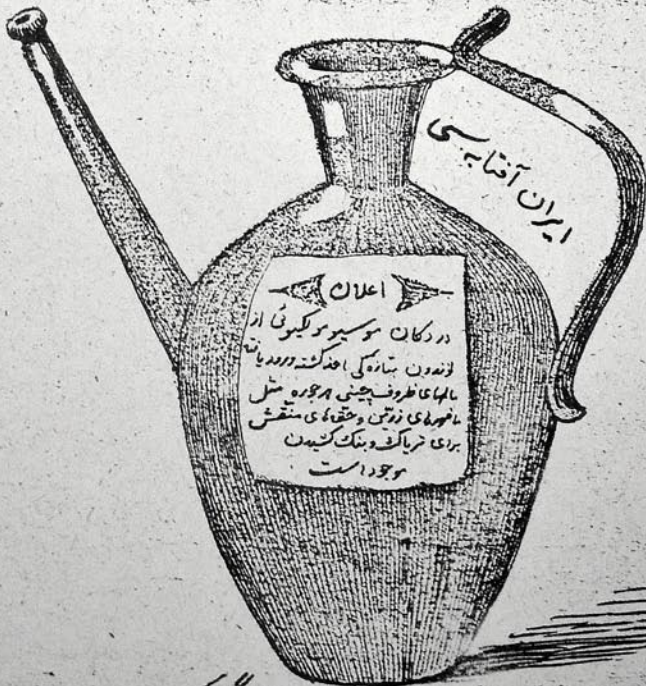 ایران آفتابه سی
اعلان
در دکان موسیو مولکیوئی از
لوندون بتازه کی اخذ گشته ورود یافته
مالهای ظروف چینی هر جوره مثل
مافورهای زرین و حقه های منقش
برای تریاک و بنک کشیدن
موجود است